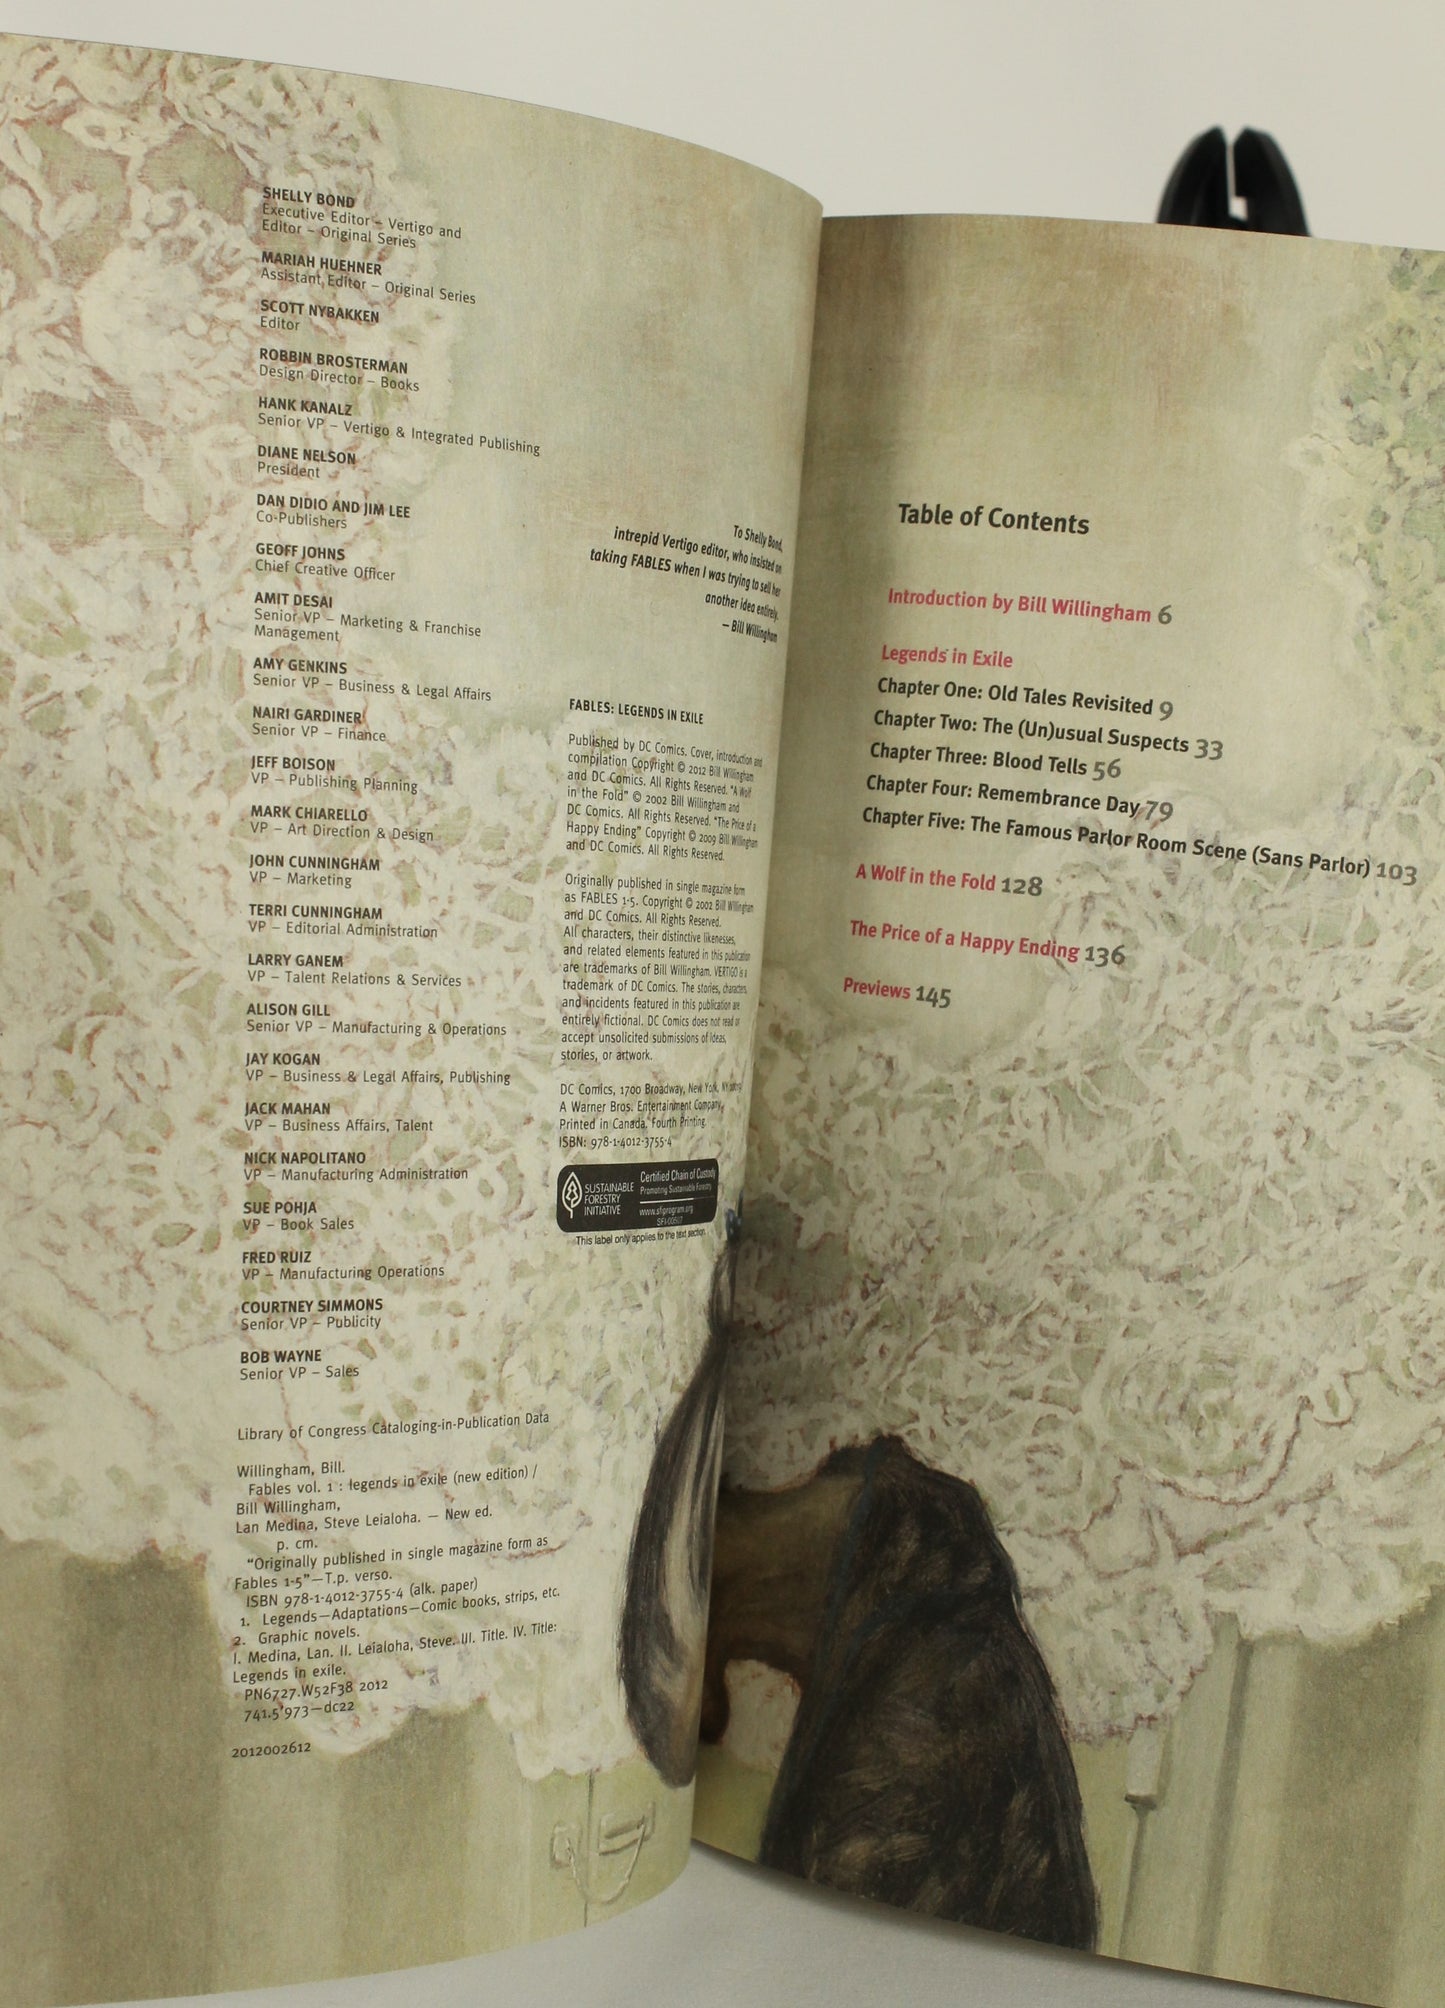 SHELLY BOND
Executive Editor – Vertigo and
Editor – Original Series
MARIAH HUEHNER
Assistant Editor – Original Series
SCOTT NYBAKKEN
Editor
ROBBIN BROSTERMAN
Design Director – Books
HANK KANALZ
Senior VP – Vertigo & Integrated Publishing
DIANE NELSON
President
DAN DIDIO AND JIM LEE
Co-Publishers
GEOFF JOHNS
Chief Creative Officer
AMIT DESAI
Senior VP – Marketing & Franchise
Management
AMY GENKINS
Senior VP – Business & Legal Affairs
NAIRI GARDINER
Senior VP – Finance
JEFF BOISON
VP – Publishing Planning
MARK CHIARELLO
VP – Art Direction & Design
JOHN CUNNINGHAM
VP – Marketing
TERRI CUNNINGHAM
VP – Editorial Administration
LARRY GANEM
VP – Talent Relations & Services
ALISON GILL
Senior VP – Manufacturing & Operations
JAY KOGAN
VP – Business & Legal Affairs, Publishing
JACK MAHAN
VP – Business Affairs, Talent
NICK NAPOLITANO
VP – Manufacturing Administration
SUE POHJA
VP – Book Sales
FRED RUIZ
VP – Manufacturing Operations
COURTNEY SIMMONS
Senior VP – Publicity
BOB WAYNE
Senior VP – Sales
Library of Congress Cataloging-in-Publication Data
Willingham, Bill.
Fables vol. 1 : legends in exile (new edition) /
Bill Willingham,
Lan Medina, Steve Leialoha. — New ed.
p. cm.
“Originally published in single magazine form as
Fables 1-5”—T.p. verso.
ISBN 978-1-4012-3755-4 (alk. paper)
1. Legends—Adaptations—Comic books, strips, etc.
2. Graphic novels.
I. Medina, Lan. II. Leialoha, Steve. III. Title. IV. Title:
Legends in exile.
PN6727.W52F38 2012
741.5'973—dc22
2012002612
To Shelly Bond,
intrepid Vertigo editor, who insisted on
taking FABLES when I was trying to sell her
another idea entirely.
– Bill Willingham
FABLES: LEGENDS IN EXILE
Published by DC Comics. Cover, introduction and
compilation Copyright © 2012 Bill Willingham
and DC Comics. All Rights Reserved. "A Wolf
in the Fold" © 2002 Bill Willingham and
DC Comics. All Rights Reserved. "The Price of a
Happy Ending" Copyright © 2009 Bill Willingham
and DC Comics. All Rights Reserved.
Originally published in single magazine form
as FABLES 1-5. Copyright © 2002 Bill Willingham
and DC Comics. All Rights Reserved.
All characters, their distinctive likenesses,
and related elements featured in this publication
are trademarks of Bill Willingham. VERTIGO is a
trademark of DC Comics. The stories, characters,
and incidents featured in this publication are
entirely fictional. DC Comics does not read or
accept unsolicited submissions of ideas,
stories, or artwork.
DC Comics, 1700 Broadway, New York, NY
A Warner Bros. Entertainment Company.
Printed in Canada. Fourth Printing.
ISBN: 978-1-4012-3755-4
SUSTAINABLE
FORESTRY
INITIATIVE
Certified Chain of Custody
Promoting Sustainable Forestry
www.sfiprogram.org
This label only applies to the text section.
Table of Contents
Introduction by Bill Willingham 6
Legends in Exile
Chapter One: Old Tales Revisited 9
Chapter Two: The (Un)usual Suspects 33
Chapter Three: Blood Tells 56
Chapter Four: Remembrance Day 79
Chapter Five: The Famous Parlor Room Scene (Sans Parlor) 103
A Wolf in the Fold 128
The Price of a Happy Ending 136
Previews 145